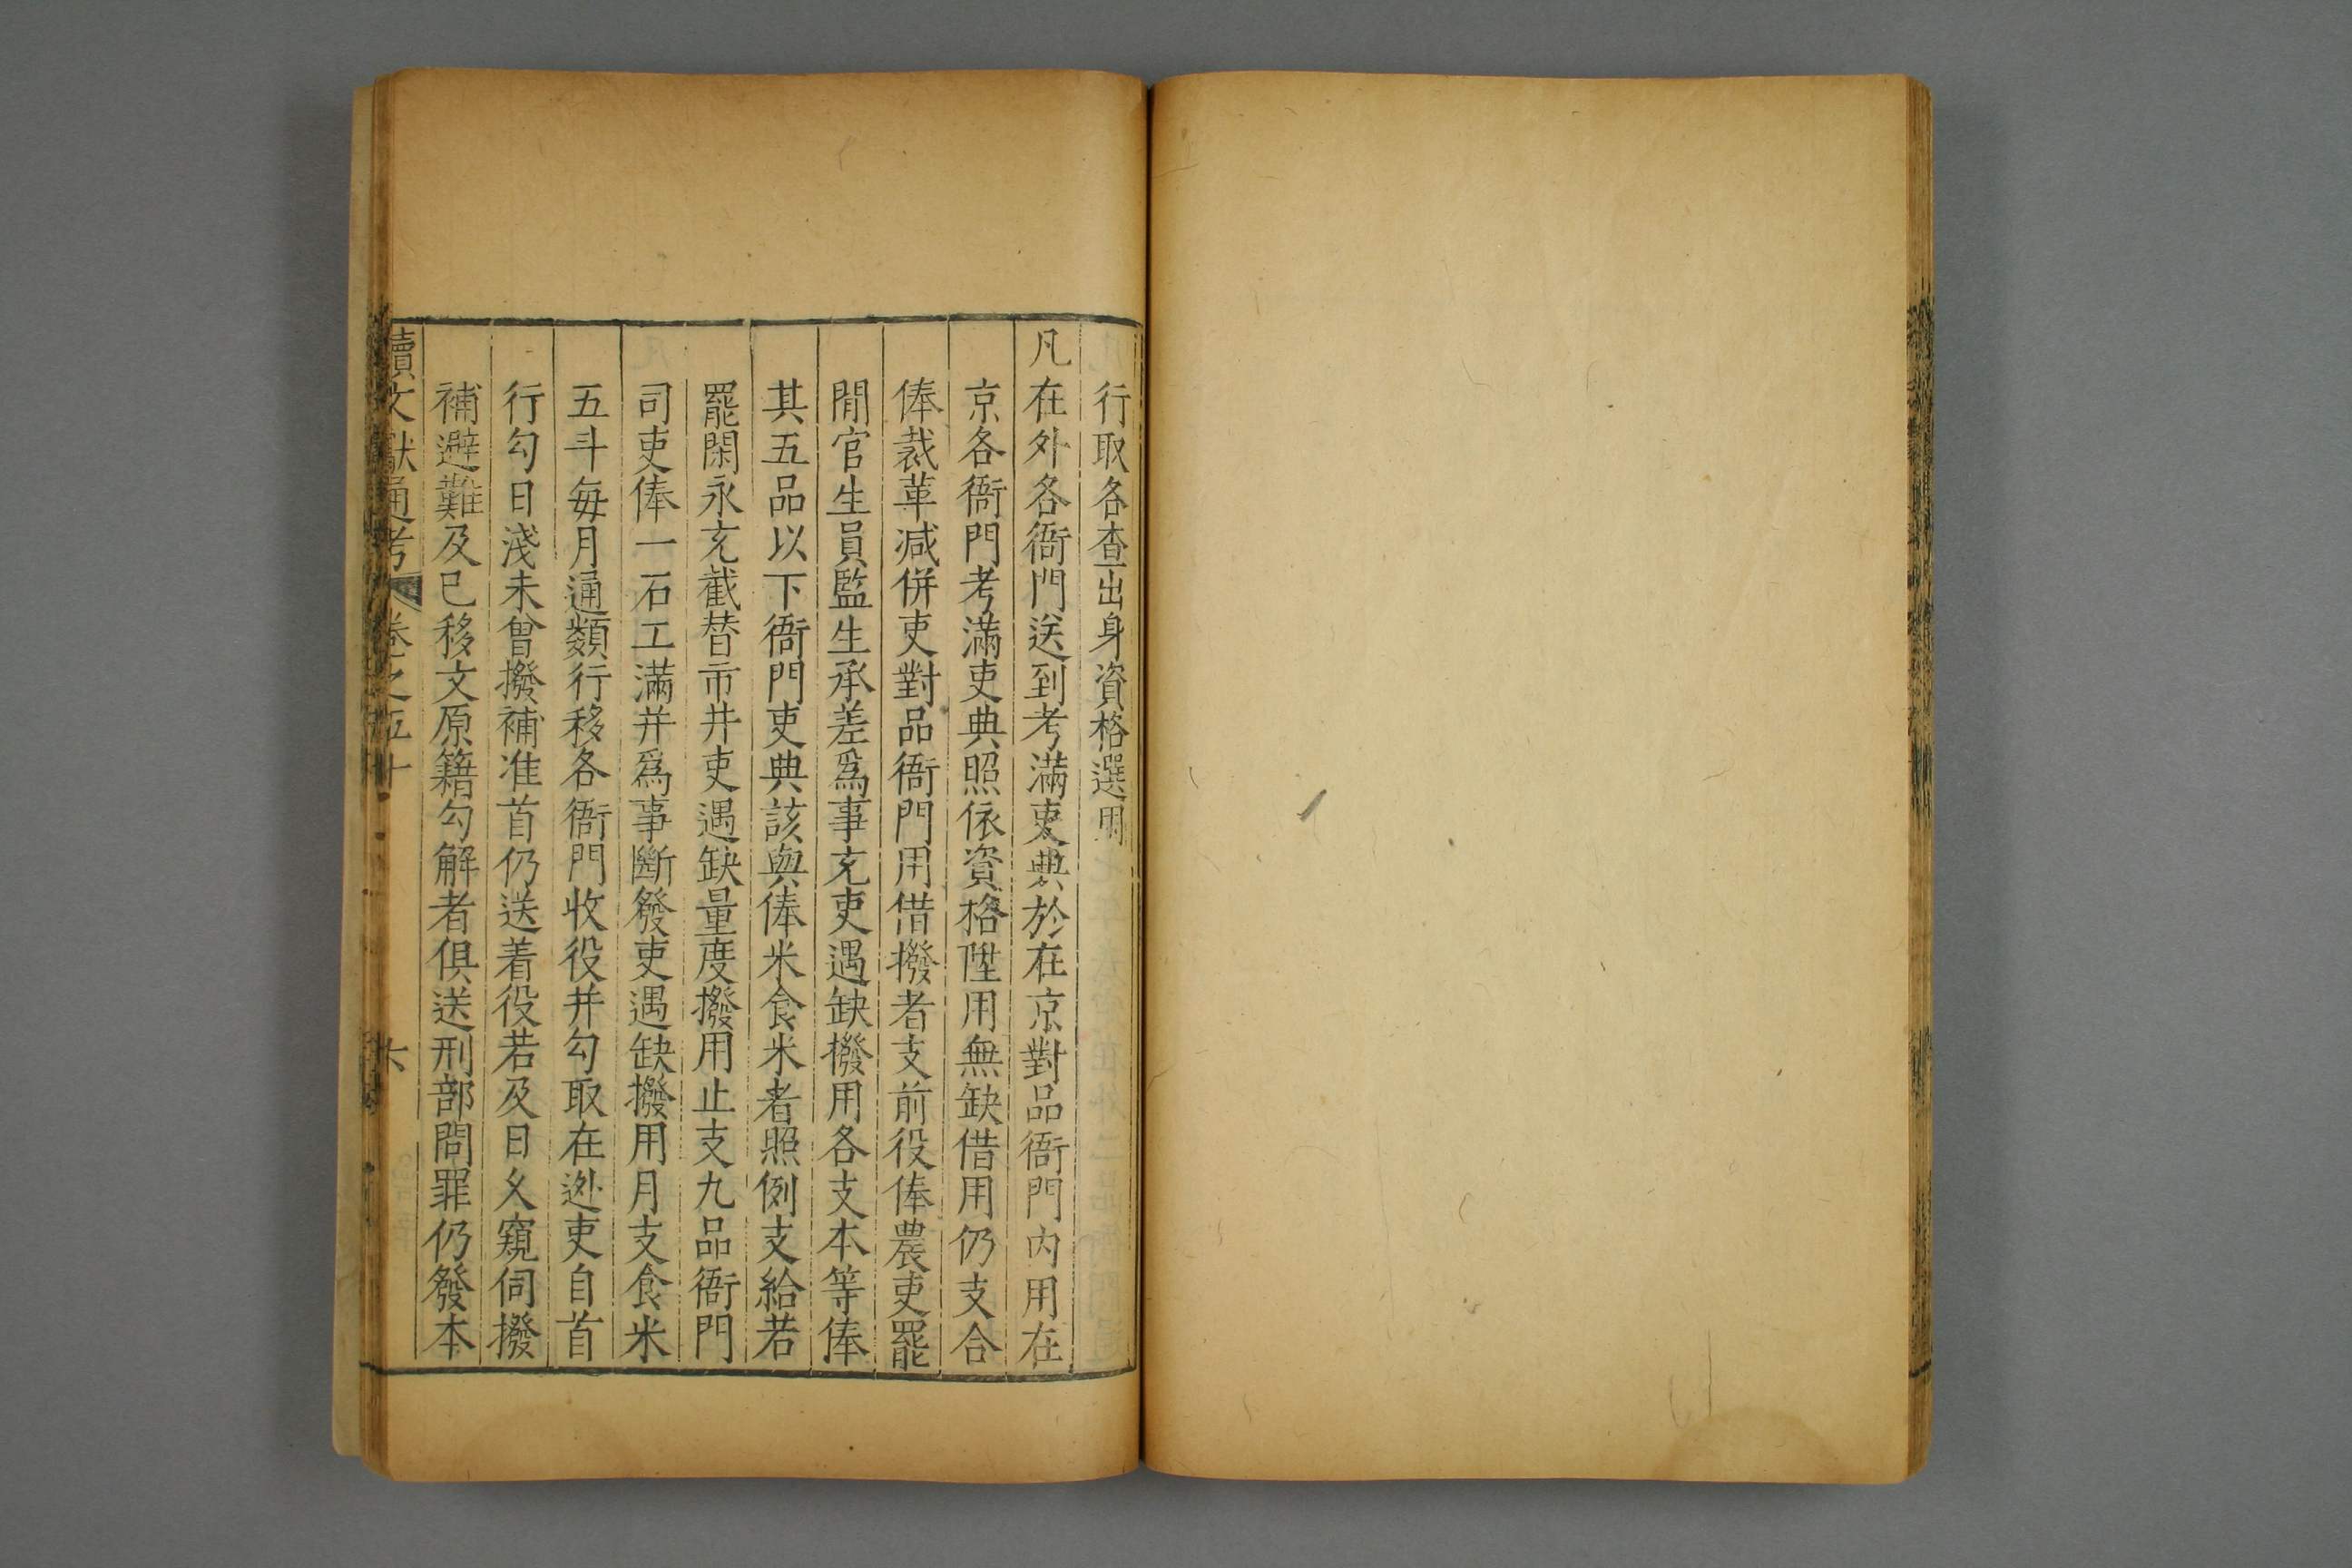 行取各查出身資格選用
凡在外各衙門送到考滿吏典於在京對品衙門內用在
京各衙門考滿吏典照依資格陞用無缺借用仍支合
俸裁革減併吏對品衙門用借撥者支前役俸農吏罷
閒官生員監生承差爲事充吏遇缺撥用各支本等俸
其五品以下衙門吏典該與俸米食米者照例支給若
罷閑永充截替市井吏遇缺量度撥用止支九品衙門
司吏俸一石工滿并爲事斷發吏遇缺撥用月支食米
五斗每月通類行移各衙門收役并勾取在逃吏自首
行勾日淺未曾撥補准首仍送着役若及日久窺伺撥
補避難及已移文原籍勾解者俱送刑部問罪仍發本
續文獻通考 卷之五十 六